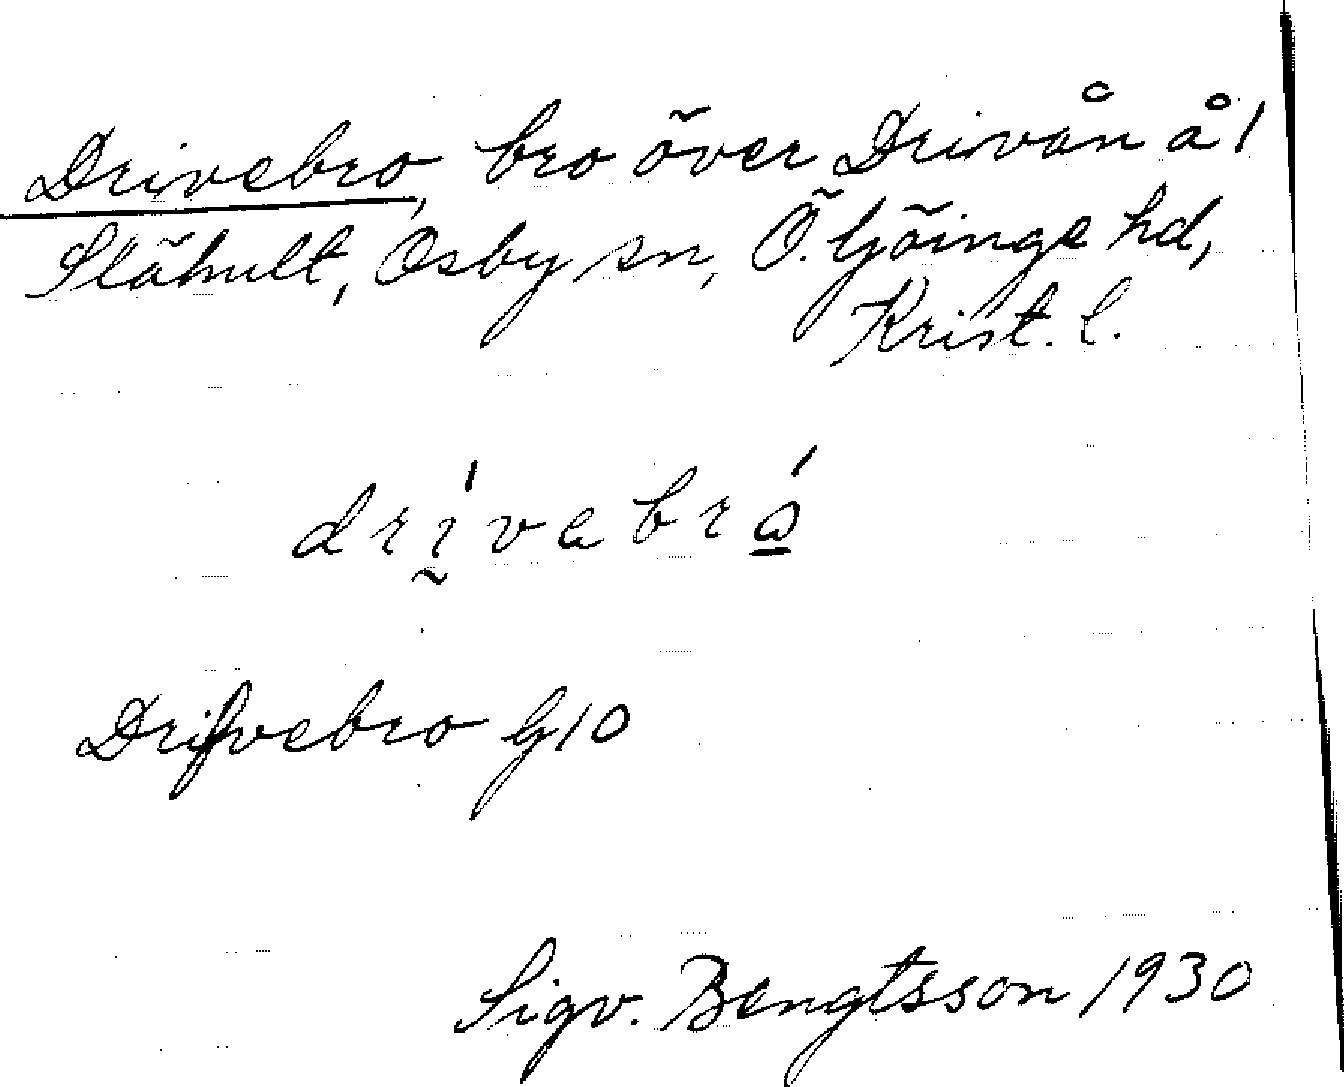 Drivebro, bro över Drivån å 1
Slähult, Osby sn, Ö. Göinge hd,
Krist. l.
drívebró
Drifvebro G10
Sigv. Bengtsson 1930